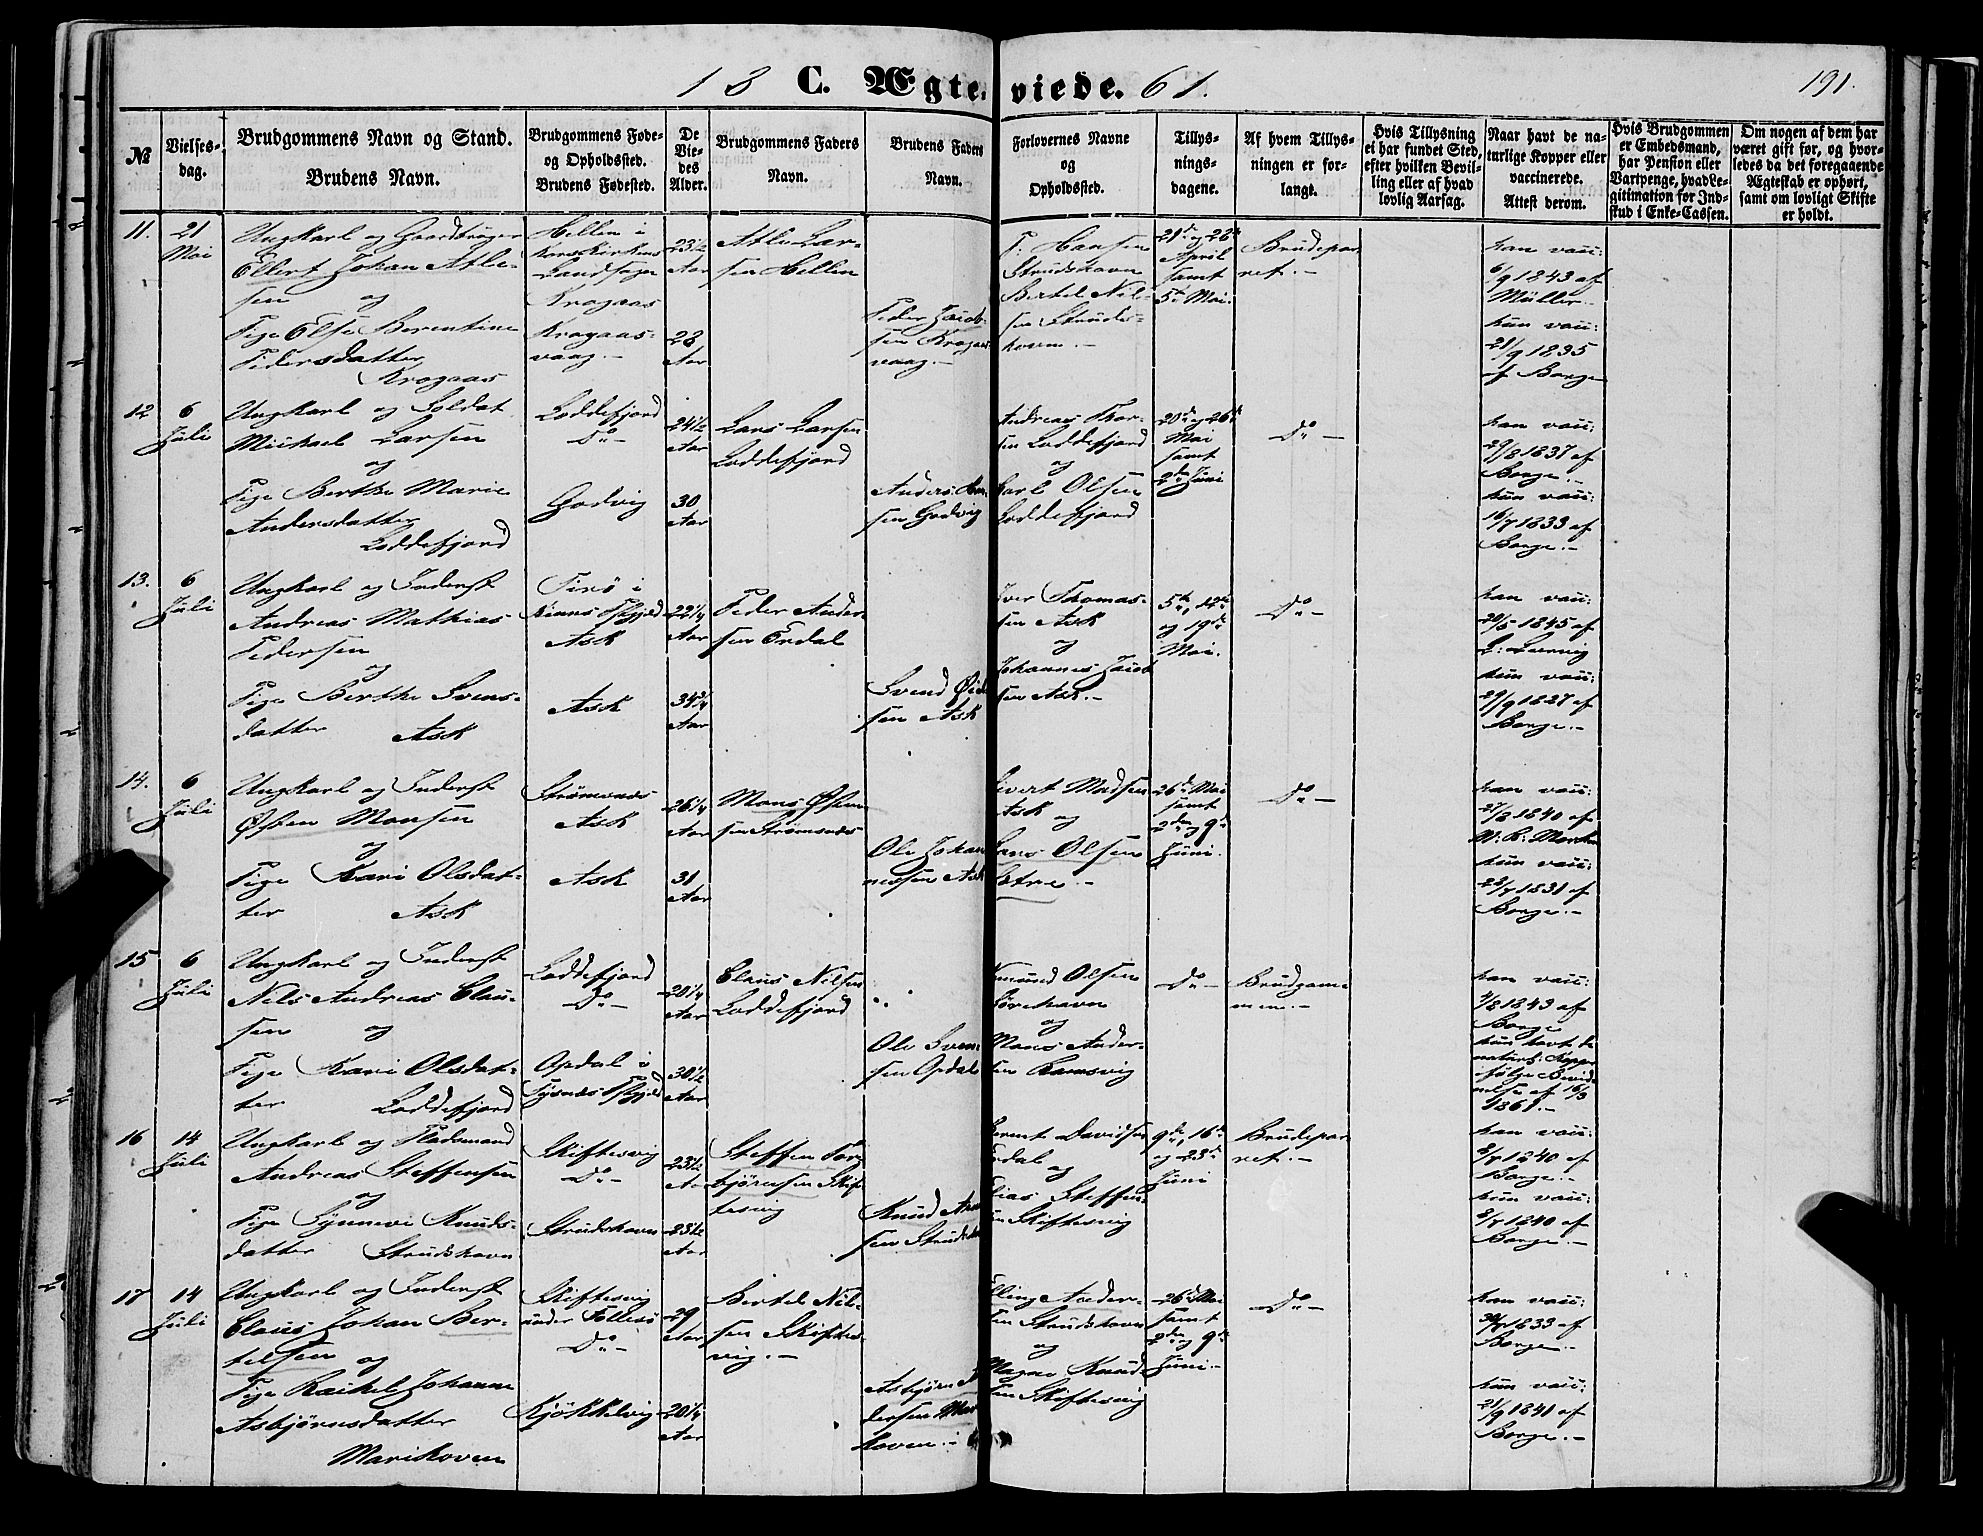 18 C. Ægteviede. 61.
191.
№
Vielses-
dag.
Brudgommens Navn og Stand.
Brudens Navn.
Brudgommens Føde-
og Opholdssted.
Brudens Fødested.
De
Vie-
des
Alder.
Brudgommens Faders
Navn.
Brudens Faders
Navn.
Forlovernes Navne
og
Opholdssted.
Tillys-
nings-
dagene.
Af hvem Tillys-
ningen er for-
langt.
Hvis Tillysning
ei har fundet Sted,
efter hvilken Bevil-
ling eller af hvad
lovlig Aarsag.
Naar havt de na-
turlige Kopper eller
vaccinerede.
Attest derom.
Hvis Brudgommen
er Embedsmand,
har Pension eller
Vartpenge, hvad Le-
gitimation for Ind-
skud i Enke-Cassen.
Om nogen af dem har
været gift før, og hvor-
ledes da det foregaaende
Ægteskab er ophørt,
samt om lovligt Skifte
er holdt.
11.
21
Mai
Ungkarl og Gaardbruger
Ellert Johan Atle-
sen og
Pige Else Berentine
Pedersdatter
Krogaas
Hellen i
Landsogn
Krogaas
Krogaas-
vaag.-
23½
Aar
28
Aar
Atle Lar-
sen Hellen
Peder Jacob-
sen Krogaas-
vaag.-
P. Hansen
Strudshavn
Bertel Nil-
sen Struds-
havn.-
21de og 28de
April
samt
5te Mai.
Brudepar-
ret.-
han vacc:
6/9 1843 af
Müller.-
hun vacc:
21/9 1835
af Borge
12
6
Juli
Ungkarl og Soldat
Michael Larsen
og
Pige Berthe Marie
Andersdatter
Loddefjord
Loddefjord
Do-
Godvig
24½
Aar
30
Aar
Lars Larsen
Loddefjord
Anders Han-
sen Godvig
Andreas Thor-
sen Loddefjord
og
Carl Olsen
Loddefjord
20de og 26de
Mai
samt
2den Juni
Do-
han vacc:
29/8 1837 af
Borge.-
hun vacc:
16/7 1833 af
Borge.-
13.
6
Juli
Ungkarl og Inderst
Andreas Mathias
Pedersen
og
Pige Berthe Svens-
datter Ask
Kinns Prgjeld
Ask
Ask
22¼
Aar
34¾
Aar
Peder Ander-
sen Erdal
Svend Øich
sen Ask
Iver Thomas-
sen Ask
og
Johannes Jacob
sen Ask.-
5te, 12te
og 19de
Mai.
Do-
han vacc:
20/5 1845 af
hun vacc:
29/9 1827 af
Borge.-
14.
6
Juli
Ungkarl og Inderst
Østen Monsen
og
Pige Kari Olsdat-
ter Ask
Strømsnæs
Ask
Ask
26¼
Aar
31
Aar
Mons Østen-
sen Strømsnæs
Ole Johan
nessen Ask
Sivert Madsen
Ask og
Lars Olsen
26de Mai
samt
2den og 9de
Juni.
Do-
han vacc:
21/8 1840 af
hun vacc:
23/7 1831 af
Borge.-
15
6
Juli
Ungkarl og Inderst
Nils Andreas Clau-
sen og
Pige Kari Olsdat-
ter Loddefjord
Loddefjord
Do-
Opdal i
Tysnæs Prgjeld
20¼
Aar
30½
Aar
Claus Nilsen
Loddefjord
Ole Sven-
sen Opdal
Amund Olsen
og
Mons Ander-
sen Ramsvig
Do-
Brudgom-
men.-
han vacc:
4/8 1843 af
Borge
hun havt de
naturl: Kopper
ifølge Bevid-
nelse af 16/3
1861.-
16
14
Juli
Ungkarl og Pladsmand
Andreas Steffensen
og
Pige Synneve Knuds-
datter Strudshavn
Skiftesvig
Do-
Strudshavn
23½
Aar
23½
Aar
Steffen Tor-
bjørnsen Skif-
tesvig
Knud And
sen Strudsh
Berent Davidsen
Erdal
og
Elias Steffen
sen Skiftesvig
9de, 16de
og 23de
Juni
Brudepar-
ret.-
han vacc:
2/7 1840 af
Borge.-
hun vacc:
2/7 1840 af
Borge.-
17
14
Juli
Ungkarl og Inderst
Claus Johan Ber-
telsen og
Pige Rakel Johanne
Asbjørnsdatter
Marikoven
Skiftesvig
under Follesø
Do-
Kjøkkelvig
29
Aar
20¼
Aar
Bertel Nil-
sen Skiftes-
vig.-
Asbjørn P
dersen Mar
koven.-
Elling Ander-
sen Strudshavn
og
Magne Knud
sen Skiftesvig
26de Mai
samt
2den og 9de
Juni.-
Do-
han vacc:
1833 af
Borge.-
hun vacc:
21/9 1841 af
Borge.-